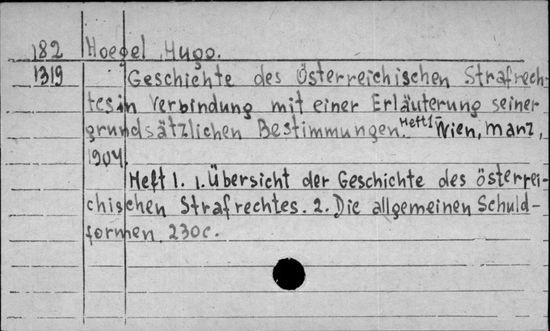 182 Hoegel, Hugo.
1319 Geschichte des Österreichischen Strafrech-
tes in Verbindung mit einer Erläuterung seiner
grundsätzlichen Bestimmungen. Heft 1- Wien, Manz,
1904.
Heft 1. 1. Übersicht der Geschichte des österrei-
chischen Strafrechtes. 2. Die allgemeinen Schuld-
formen. 230c.